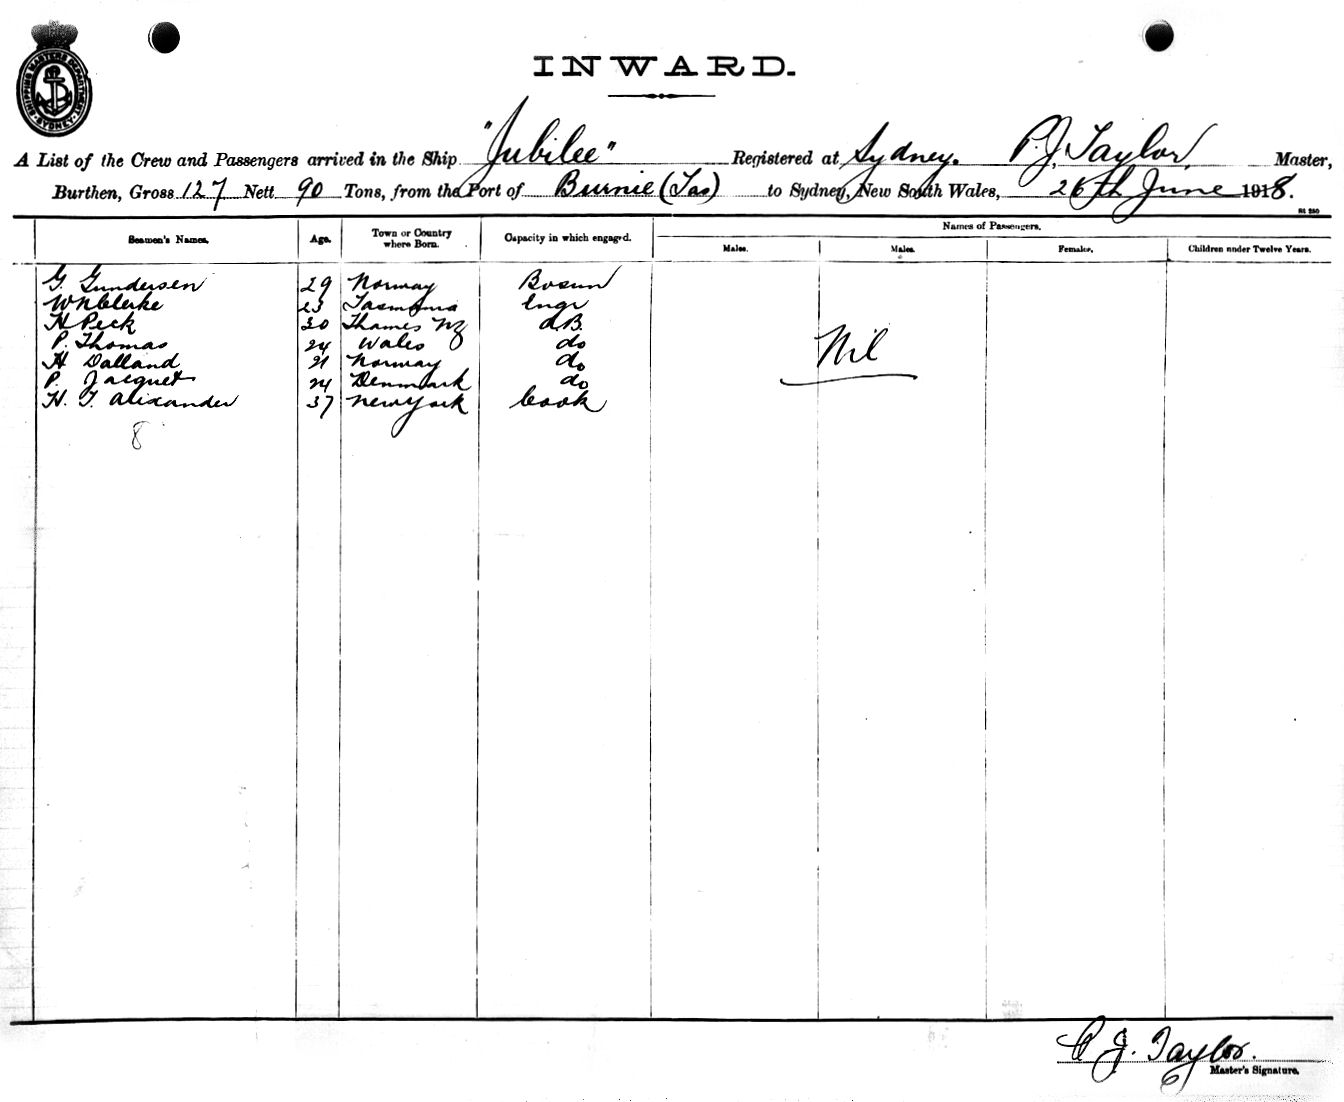 SHIPPING MASTERS DEPARTMENT SYDNEY
INWARD.
A List of the Crew and Passengers arrived in the Ship "Jubilee" Registered at Sydney. P. J. Taylor, Master,
Burthen, Gross 127 Nett 90 Tons, from the Port of Burnie (Tas) to Sydney, New South Wales, 26th June 1918.
Seamen's Names. Age. Town or Country where Born. Capacity in which engaged. Names of Passengers.
Males. Males. Females. Children under Twelve Years.
G. Gundersen 29 Norway Bosun
Clerke 23 Tasmania Engr
H Peck 30 Thames NZ A.B.
P. Thomas 24 Wales do
H Dalland 21 Norway do
P. Jacquet 24 Denmark do
H. J. Alixander 37 New York Cook
Nil
8
P. J. Taylor.
Master's Signature.